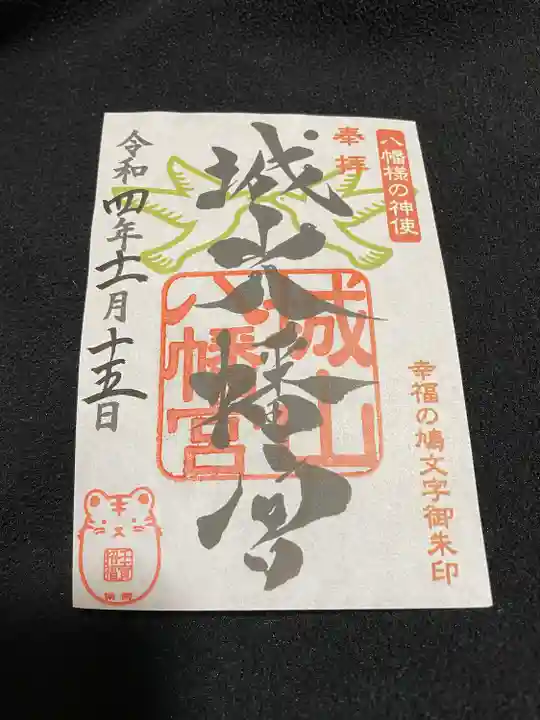 八幡様の神使
幸福の鳩文字御朱印
奉拝
城山八幡宮
城山
八幡宮
令和四年十一月十五日